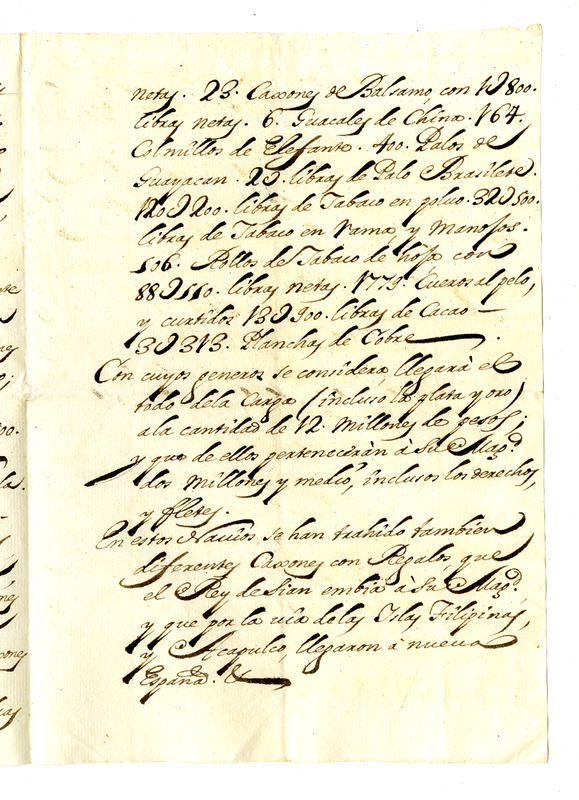 netas. 23. Caxones de Balsamo, con 1U800.
libras netas. 6. Guacales de China. 164.
Colmillos de Elefante. 400. Palos de
Guayacan. 2U. libras de Palo Brasilete.
120U200. libras de Tabaco en polvo. 32U500.
libras de Tabaco en rama, y Manojos.
506. Rollos de Tabaco de hoja con
88U510. libras netas. 1775. Cueros al pelo,
y curtidos 13U900. libras de Cacao —
3U313. Planchas de Cobre.
Con cuyos generos se considera, llegarà el
todo dela Carga (incluso la plata y oro)
ala cantidad de 12. Millones de pesos;
y que de ellos perteneceràn à Su Magd.
dos Millones y medio, inclusos los derechos,
y fletes.
En estos Navios se han trahido tambien
diferentes Caxones con Regalos que
el Rey de Sian embia à Su Magd.
y que por la via de las Islas Filipinas,
y Acapulco, llegaron a nueva
España. &